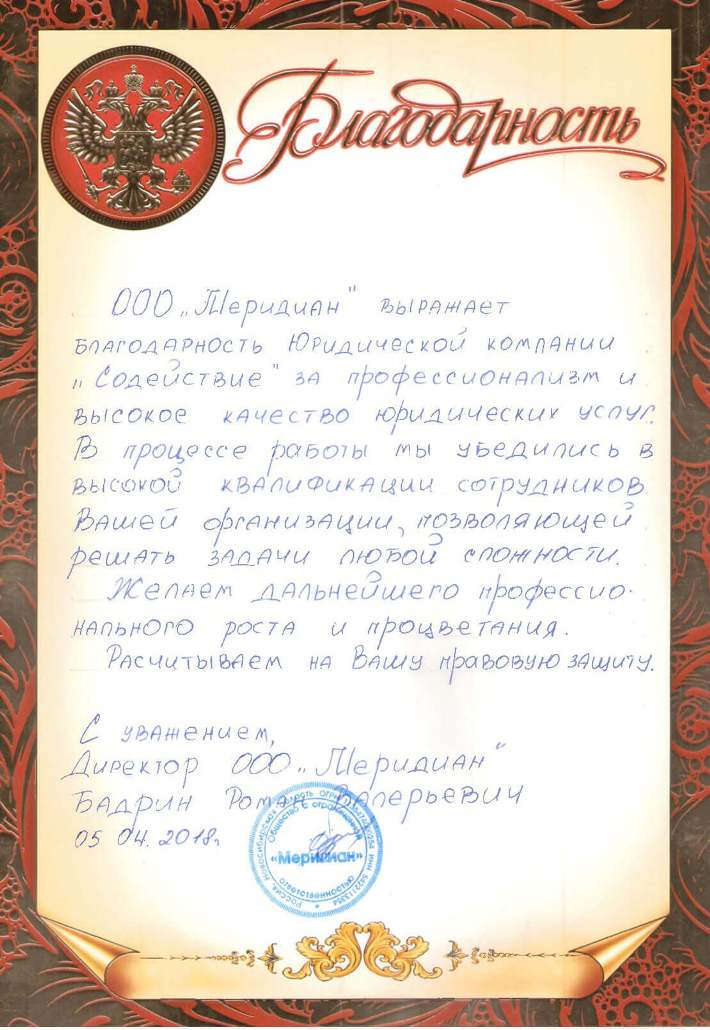 Благодарность
ООО „Меридиан" выражает
благодарность Юридической компании
„Содействие" за профессионализм и
высокое качество юридических услуг.
В процессе работы мы убедились в
высокой квалификации сотрудников
Вашей организации, позволяющей
решать задачи любой сложности.
Желаем дальнейшего профессио-
нального роста и процветания.
Расчитываем на Вашу правовую защиту.
С уважением,
Директор ООО „Меридиан"
Бадрин Роман Валерьевич
05.04.2018г.
Общество с ограниченной
«Меридиан»
ответственностью